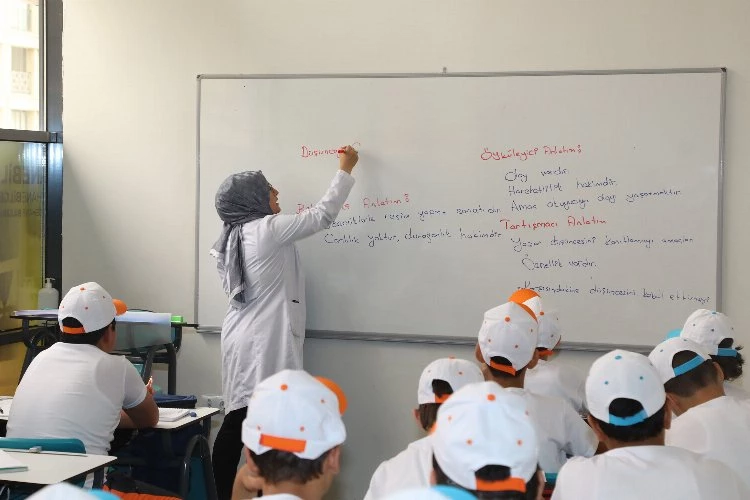 Düşünceyi
Anlatım:
resim yazma sanatıdır.
Canlılık yoktur, durağanlık hakimdir.
Öyküleyici Anlatım:
Olay vardır.
Hareketlilik hakimdir.
Amaç okuyucuyu olay yaşatmaktır.
Tartışmacı Anlatım
Yazar düşüncesini kanıtlamayı amaçlar.
Öznellik vardır.
Karşısındakine düşüncesini kabul ettirmeyi